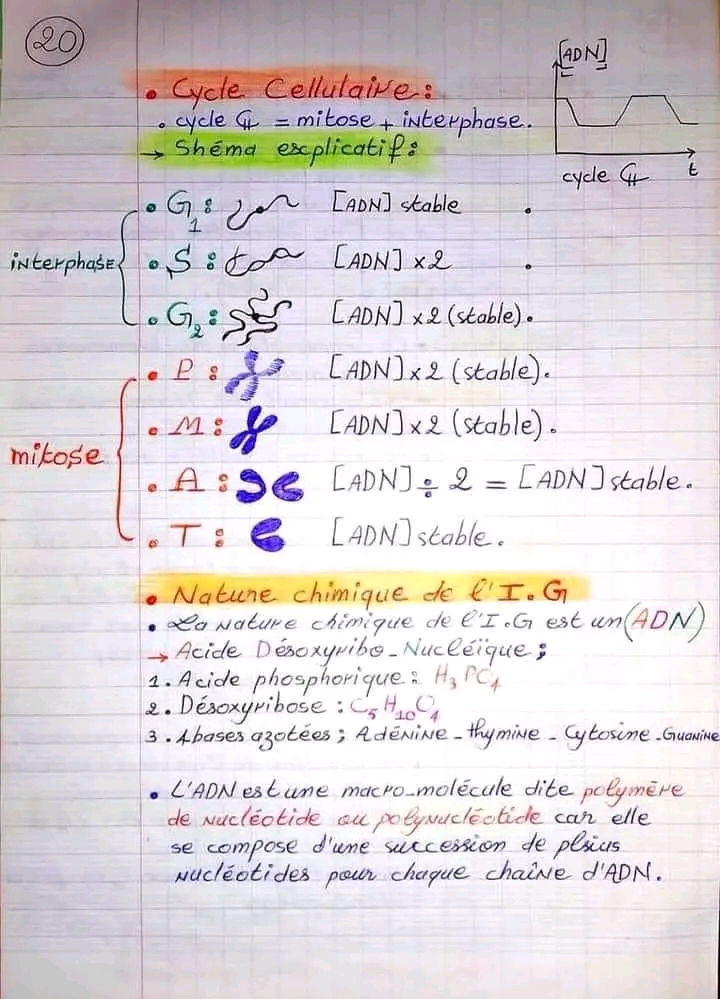 20
[ADN]
• Cycle Cellulaire :
• cycle Çll = mitose + interphase.
→ Shéma explicatif :
cycle Çll t
interphase
• G1 : [ADN] stable .
• S : [ADN] x2 .
• G2 : [ADN] x2 (stable).
mitose
• P : [ADN] x2 (stable).
• M : [ADN] x2 (stable).
• A : [ADN] ÷ 2 = [ADN] stable.
• T : [ADN] stable.
• Nature chimique de l'I.G
• La nature chimique de l'I.G est un (ADN)
→ Acide Désoxyribo-Nucléïque ;
1. Acide phosphorique : H3PC4
2. Désoxyribose : C5H10C4
3. 4 bases azotées ; Adénine - thymine - Cytosine - Guanine
• L'ADN est une macro-molécule dite polymère
de nucléotide ou polynucléotide car elle
se compose d'une succession de plsius
nucléotides pour chaque chaîne d'ADN.